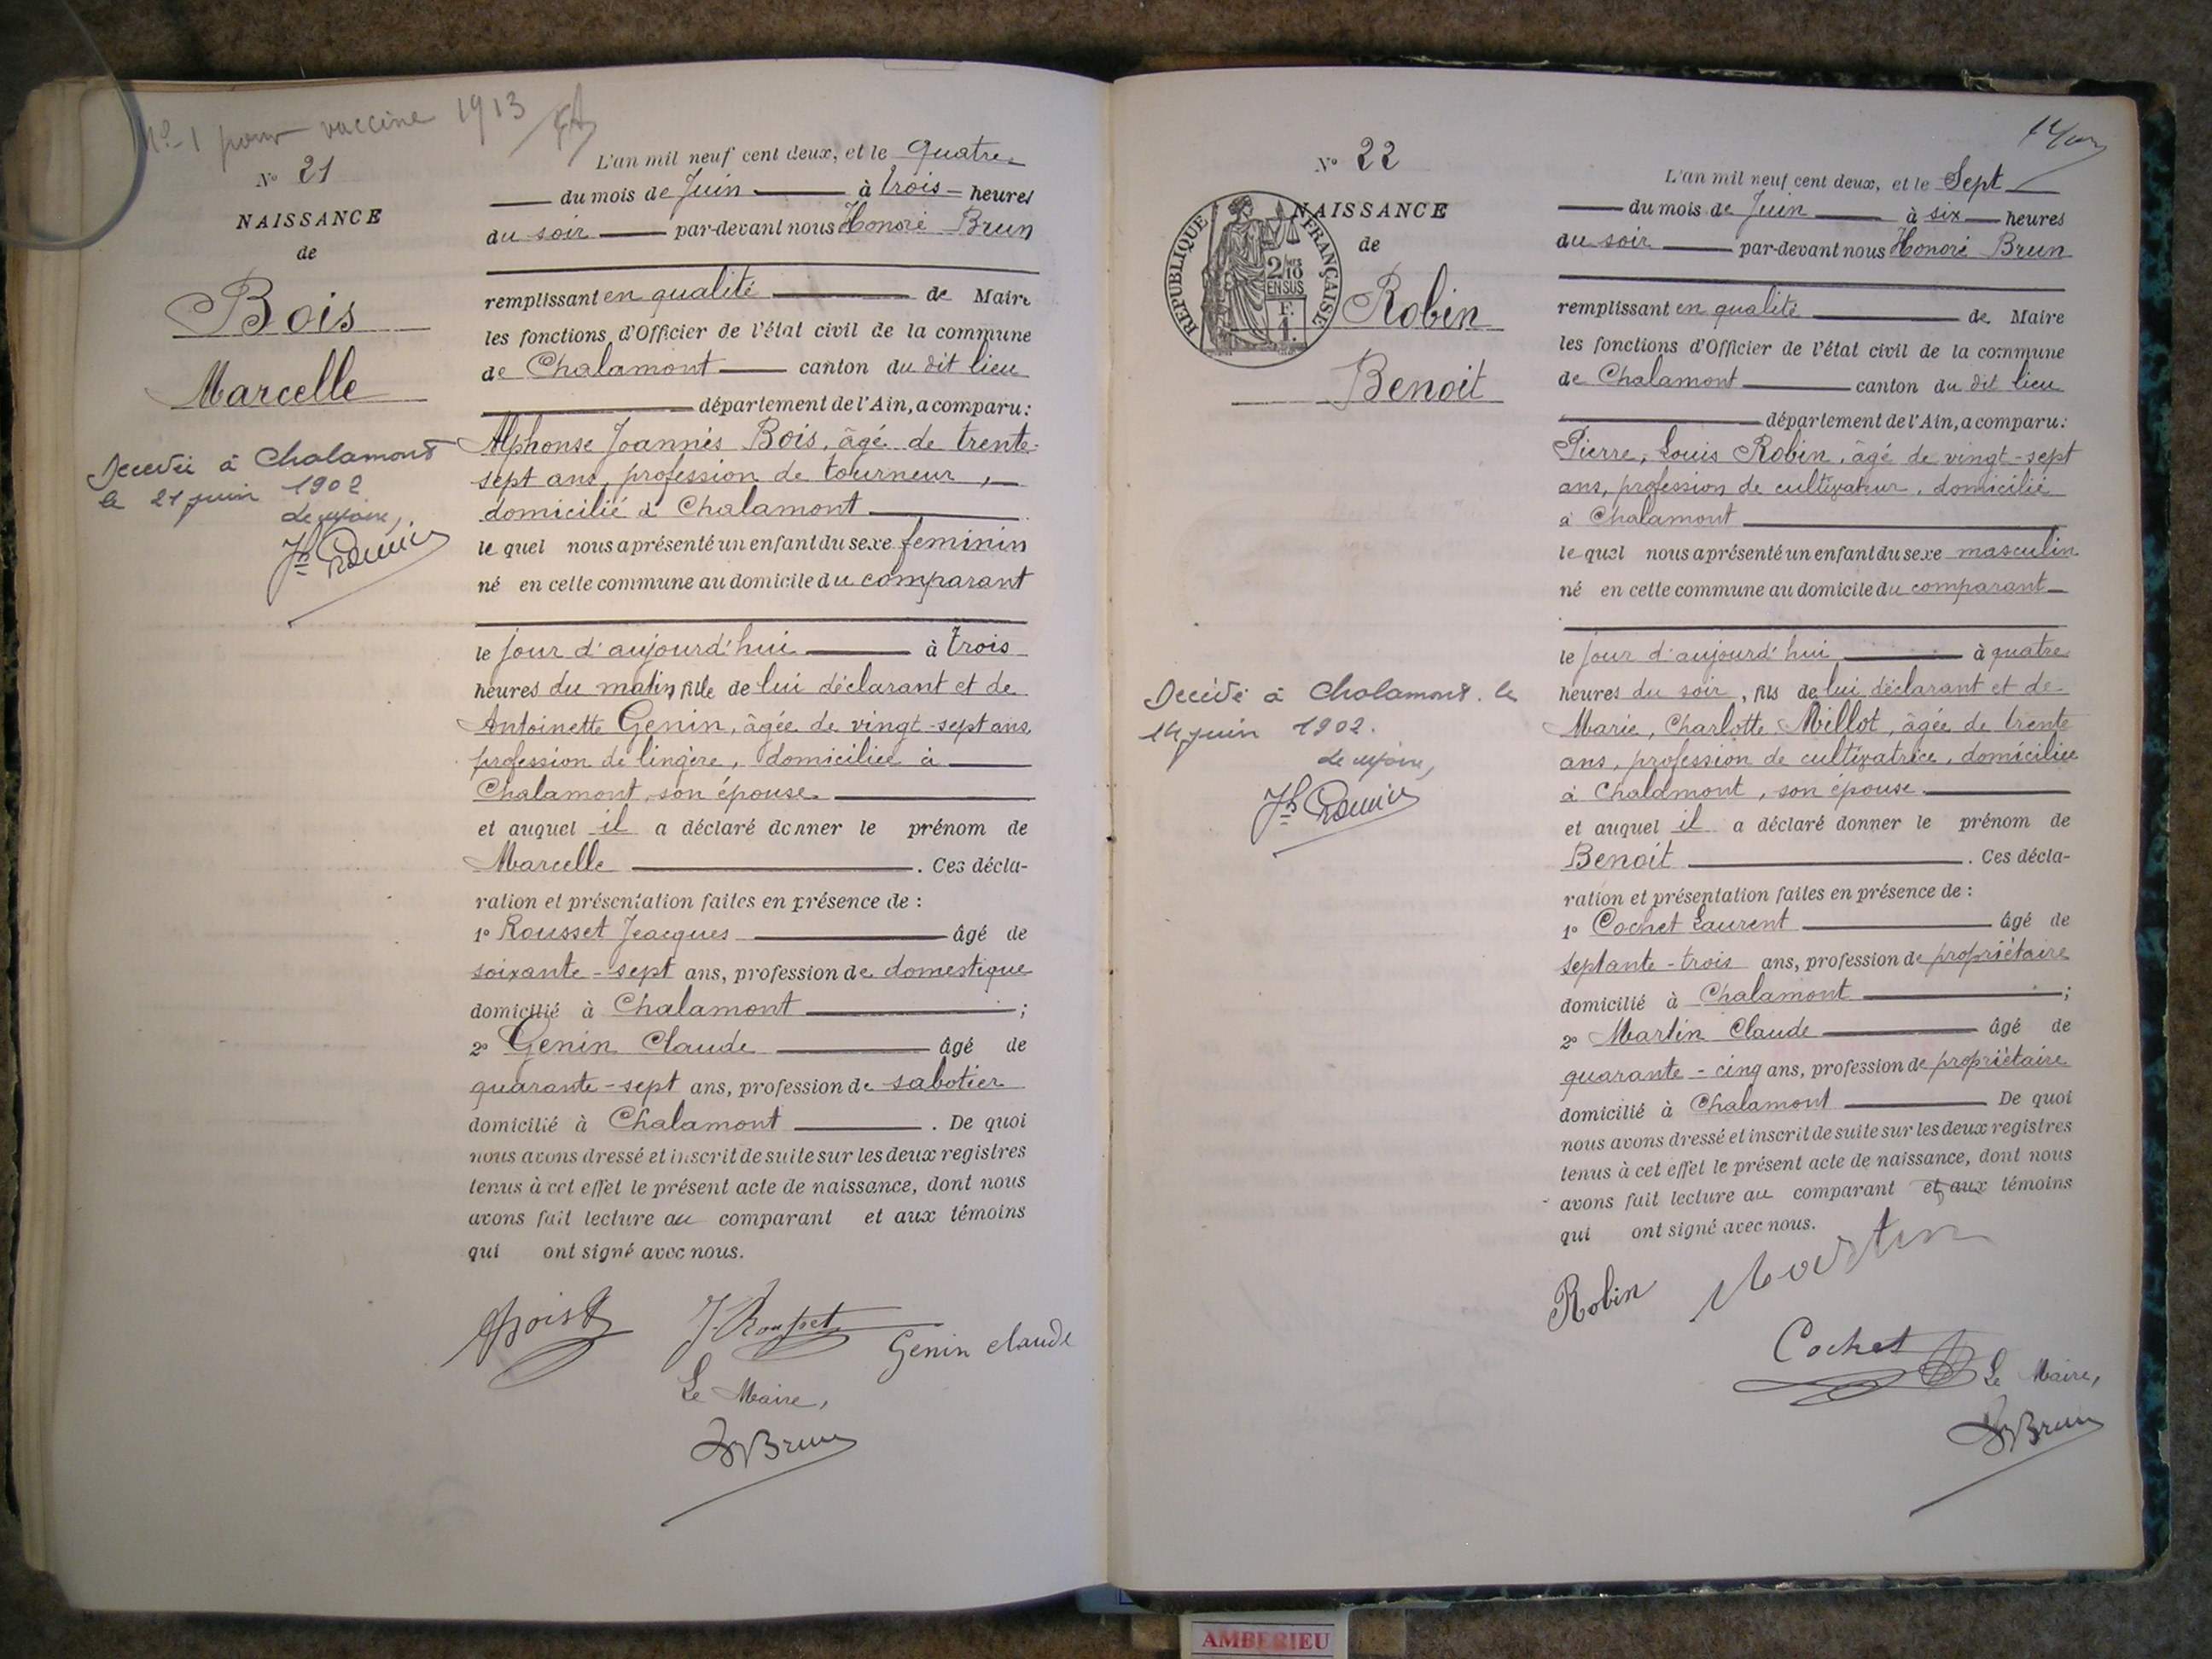 No 1 pour vaccine 1913
N° 21
NAISSANCE
de
Bois
Marcelle
Décédée à Chalamont
le 21 juin 1902
Le Maire,
L'an mil neuf cent deux, et le Quatre
du mois de Juin à trois heures
du soir par-devant nous Honoré Brun
remplissant en qualité de Maire
les fonctions d'Officier de l'état civil de la commune
de Chalamont canton du dit lieu
département de l'Ain, a comparu :
Alphonse Joannès Bois, âgé de trente-
sept ans, profession de tourneur,
domicilié à Chalamont
le quel nous a présenté un enfant du sexe féminin
né en cette commune au domicile du comparant
le jour d'aujourd'hui à trois
heures du matin, fille de lui déclarant et de
Antoinette Genin, âgée de vingt-sept ans,
profession de lingère, domiciliée à
Chalamont, son épouse
et auquel il a déclaré donner le prénom de
Marcelle . Ces décla-
ration et présentation faites en présence de :
1° Rousset Jeacques âgé de
soixante-sept ans, profession de domestique
domicilié à Chalamont ;
2° Genin Claude âgé de
quarante-sept ans, profession de sabotier
domicilié à Chalamont . De quoi
nous avons dressé et inscrit de suite sur les deux registres
tenus à cet effet le présent acte de naissance, dont nous
avons fait lecture au comparant et aux témoins
qui ont signé avec nous.
Bois J. Rousset Genin claude
Le Maire,
H Brun
N° 22
NAISSANCE
de
RÉPUBLIQUE FRANÇAISE
2/10
EN SUS
F.
1.
Robin
Benoit
Décédé à Chalamont le
14 juin 1902.
Le Maire,
L'an mil neuf cent deux, et le Sept
du mois de Juin à six heures
du soir par-devant nous Honoré Brun
remplissant en qualité de Maire
les fonctions d'Officier de l'état civil de la commune
de Chalamont canton du dit lieu
département de l'Ain, a comparu :
Pierre, Louis Robin, âgé de vingt-sept
ans, profession de cultivateur, domicilié
à Chalamont
le quel nous a présenté un enfant du sexe masculin
né en cette commune au domicile du comparant
le jour d'aujourd'hui à quatre
heures du soir, fils de lui déclarant et de
Marie, Charlotte Millot, âgée de trente
ans, profession de cultivatrice, domiciliée
à Chalamont, son épouse.
et auquel il a déclaré donner le prénom de
Benoit . Ces décla-
ration et présentation faites en présence de :
1° Cochet Laurent âgé de
septante-trois ans, profession de propriétaire
domicilié à Chalamont ;
2° Martin Claude âgé de
quarante-cinq ans, profession de propriétaire
domicilié à Chalamont De quoi
nous avons dressé et inscrit de suite sur les deux registres
tenus à cet effet le présent acte de naissance, dont nous
avons fait lecture au comparant et aux témoins
qui ont signé avec nous.
Robin Martin
Cochet Le Maire,
H Brun
AMBERIEU